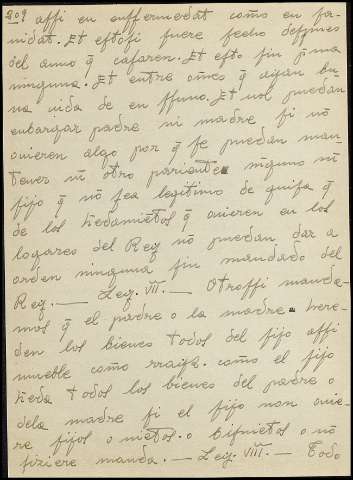 209 assi en enffermedat como en sa-
nidat. Et esto si fuere fecho despues
del anno q̃ casaren. Et esto sin p̃ma
ninguna. Et entre om̃es q̃ ayan bu-
na vida de en ssuno. Et nol puedan
enbargar padre ni madre si nõ
ouieren algo por q̃ se puedan man-
tener nĩ otro pariente ninguno nĩ
fijo q̃ nõ sea legitimo de guisa q̃
de los hedamiẽtos q̃ ouieren en los
logares del Rey nõ puedan dar a
orden ninguna sin mandado del
Rey. — Ley. VII. — Otrossi manda-
mos q̃ el padre o la madre here-
den los bienes todos del fijo assi
mueble como rrayz. como el fijo
heda todos los bienes del padre o
dela madre si el fijo non ouie-
re fijos o nietos o bisnietos o nõ
fiziere manda. — Ley. VIII. — Todo